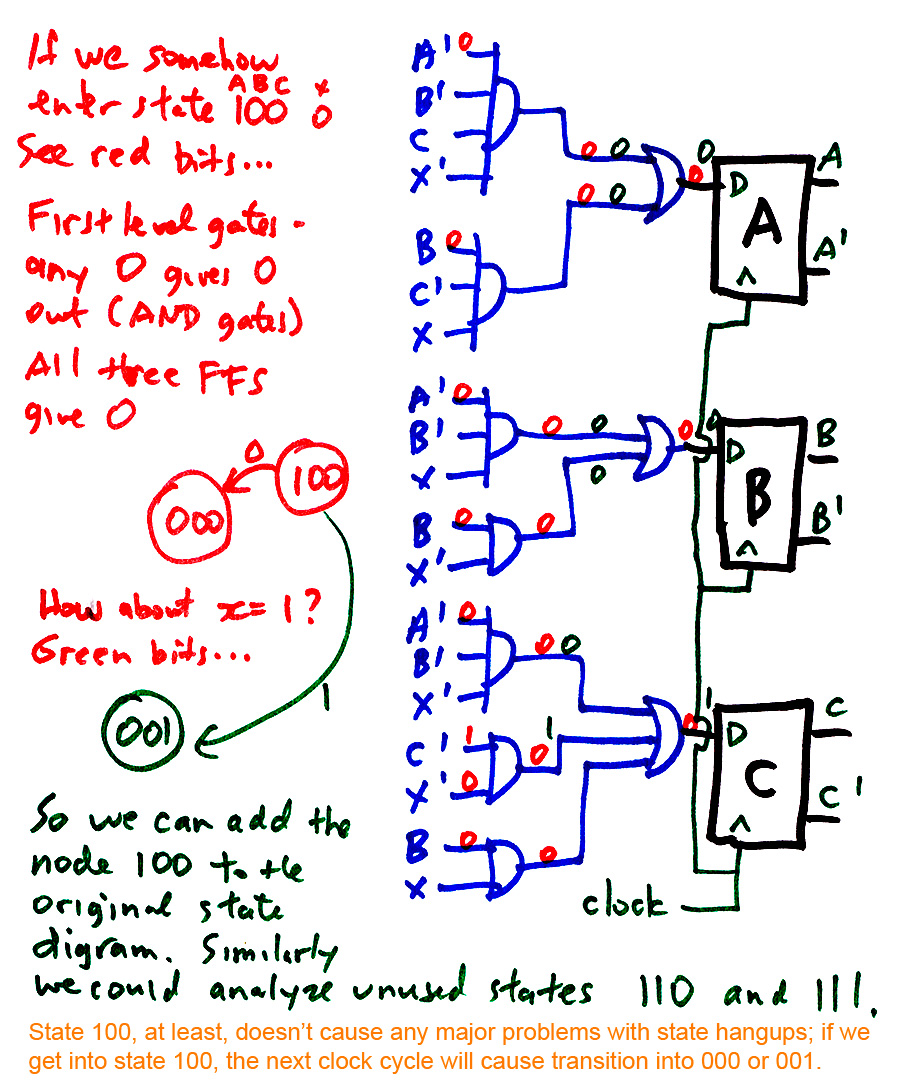 If we somehow
A B C x
enter state 100 0
See red bits...
First level gates -
any 0 gives 0
out (AND gates)
All three FFS
give 0
0
100
000
How about x=1?
Green bits...
1
001
So we can add the
node 100 to the
original state
digram. Similarly
we could analyze unused states 110 and 111.
A' 0
B'
C
X'
0 0
B 0
C'
X
0 0
0
0
D
A
A
A'
A' 0
B'
X
0 0
B 0
X'
0
0
0
0
D
B
B
B'
A' 0
B'
X'
0 0
C' 1
X' 0
0 1
B 0
X
0
0
1
D
C
C
C'
clock
State 100, at least, doesn't cause any major problems with state hangups; if we
get into state 100, the next clock cycle will cause transition into 000 or 001.